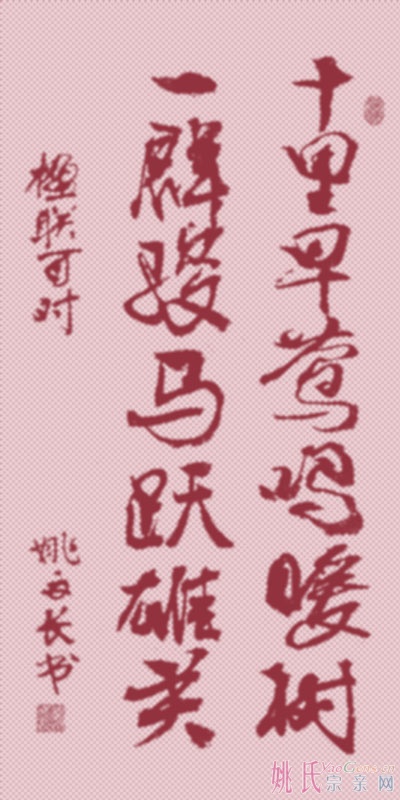 十里早莺鸣暖树
一群骏马跃雄关
楹联可对
姚文长书
姚氏宗亲网
YaoGens.cn